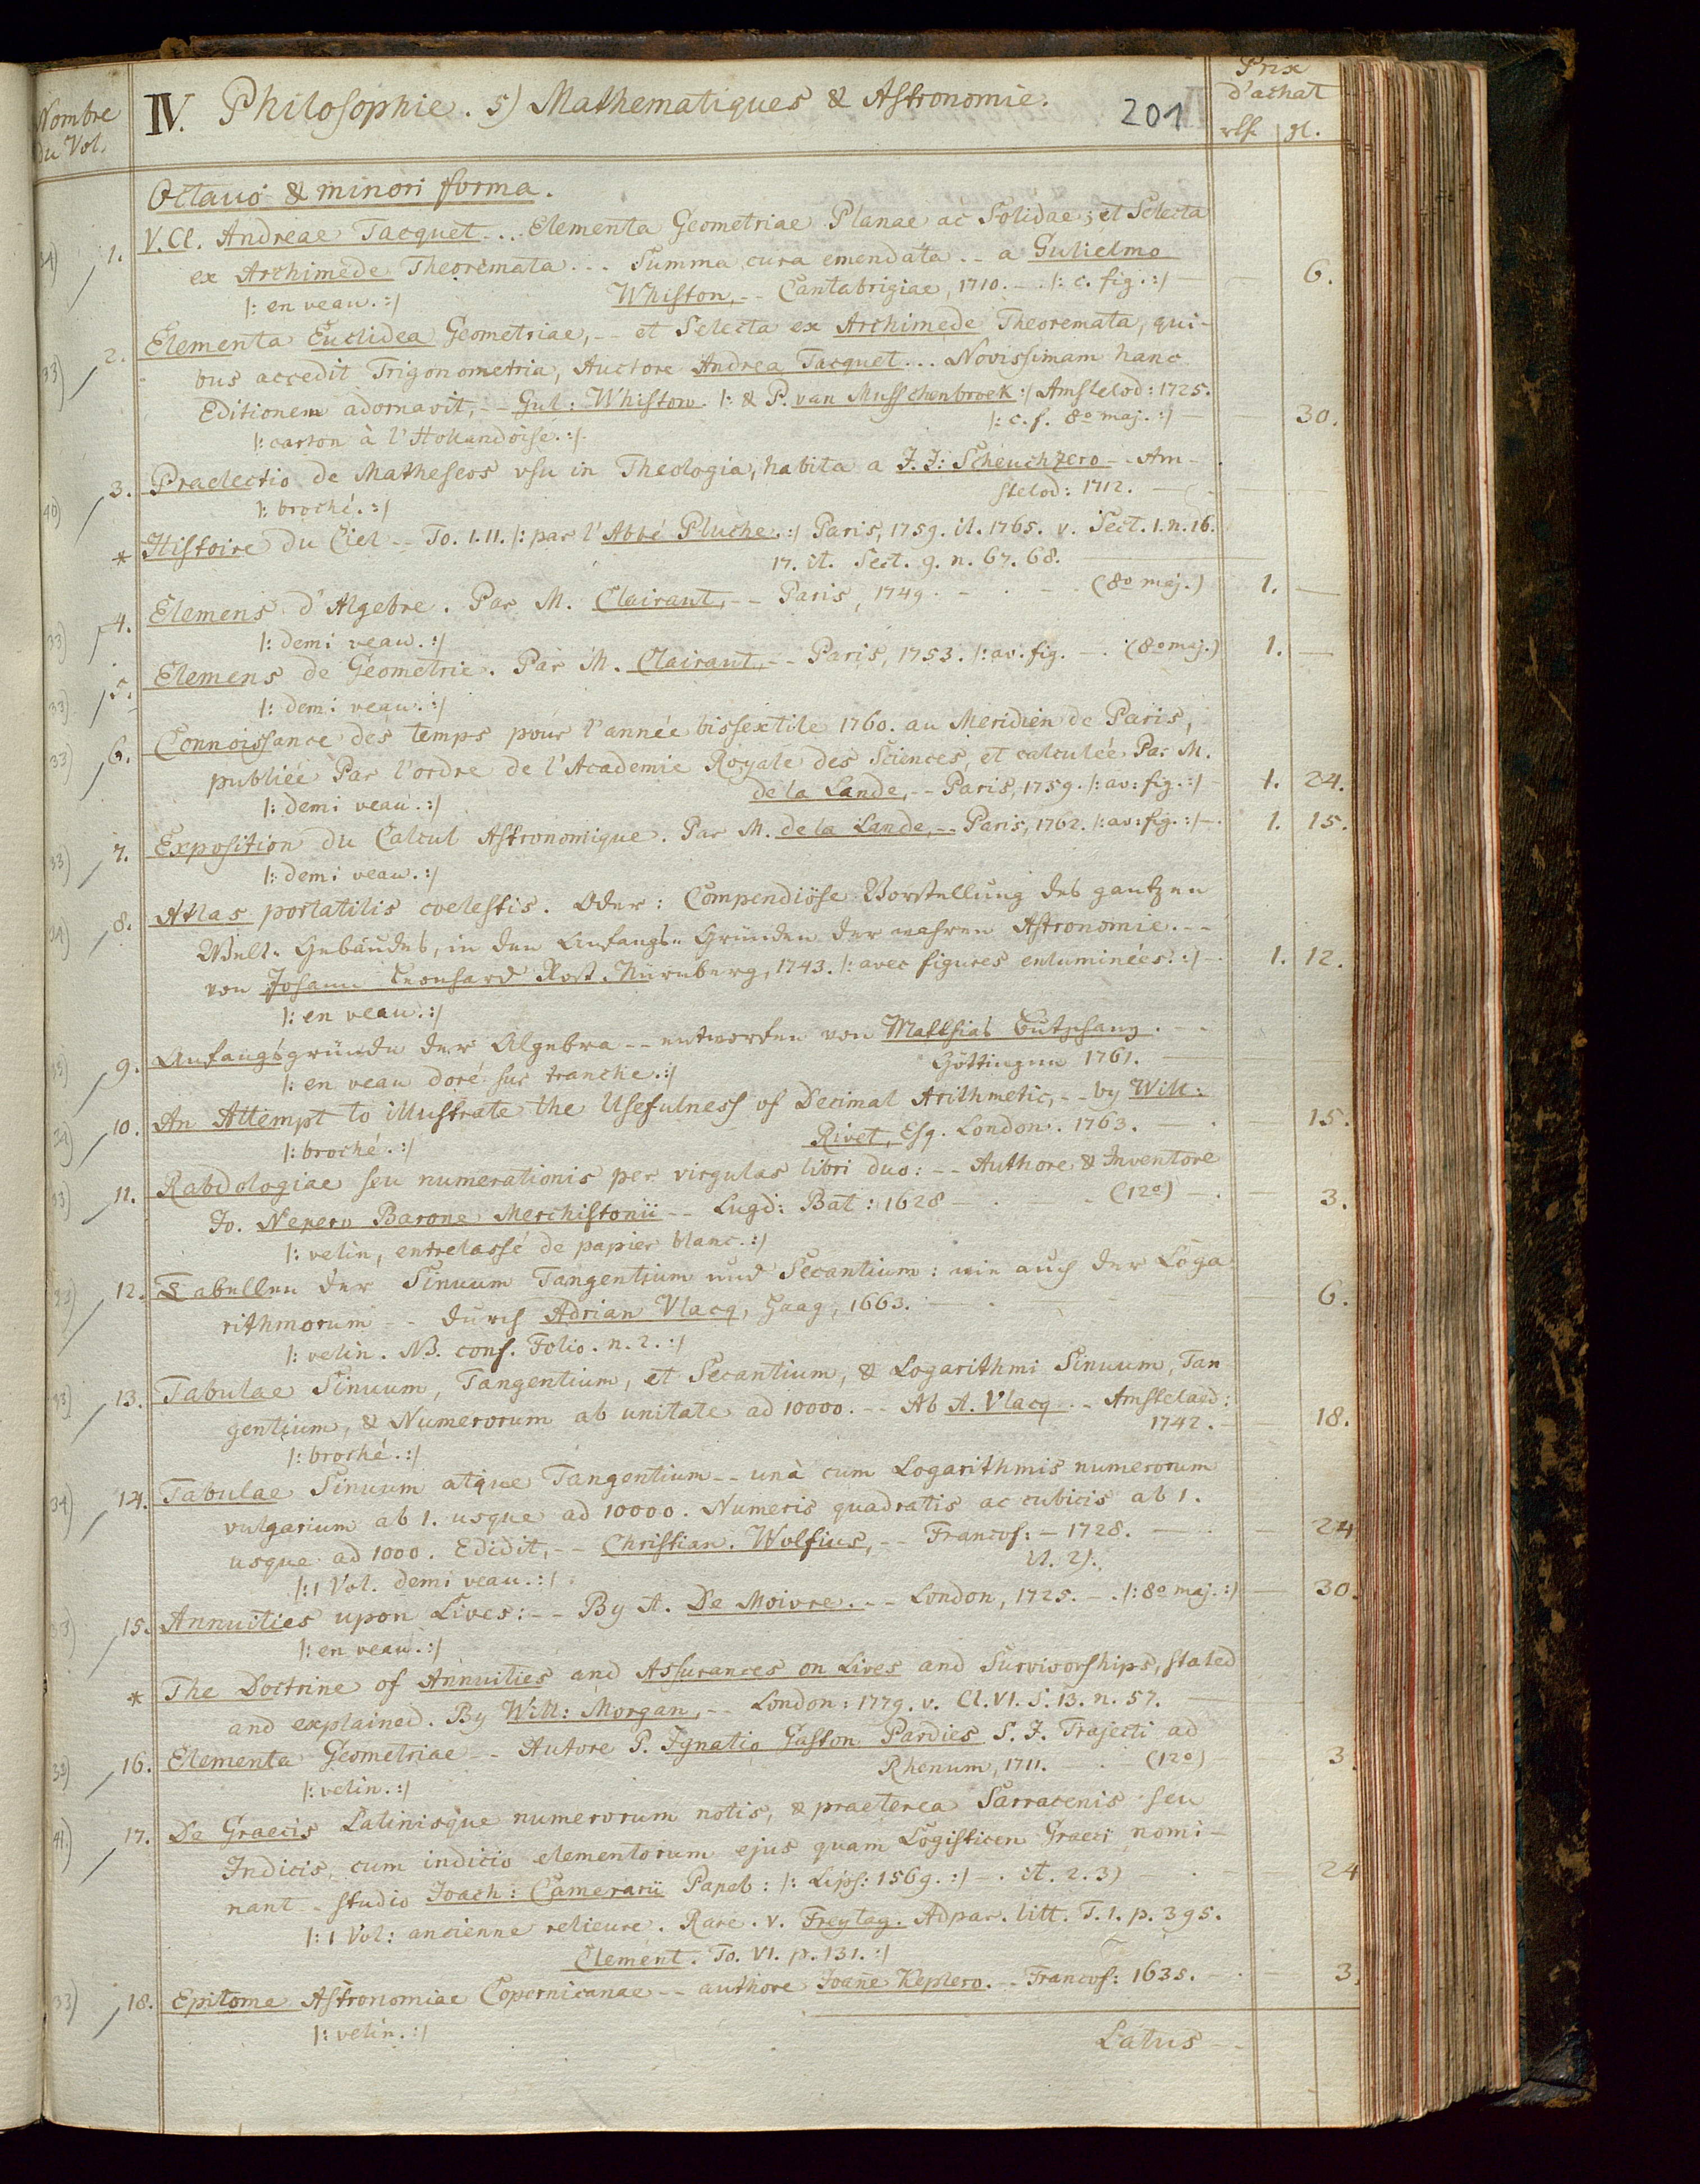 Nombre
du Vol.
IV. Philosophie. 5) Mathematiques & Astronomie.
201
Prix
d'achat
rth. gl.
Octavo & minori forma.
1. V. Cl. Andreae Tacquet... Elementa Geometriae Planae ac Solidae; et Selecta
ex Archimede Theoremata... Summa cura emendata -- a Gulielmo
|: en veau. :| Whiston, -- Cantabrigiae, 1710. -- |: c. fig. :| — 6.
33) 2. Elementa Euclidea Geometriae, -- et Selecta ex Archimede Theoremata, qui-
bus accedit Trigonometria, Auctore Andrea Tacquet... Novissimam hanc
Editionem adornavit, -- Gul: Whiston. |: & P. van Musschenbroek :| Amstelod: 1725.
|: carton à l'Hollandoise. :| |: c. f. 8o maj. :| — 30.
40) 3. Praelectio de Matheseos usu in Theologia, habita a J. J: Scheuchzero -- Am-
|: broché. :| stelod: 1712. —
* Histoire du Ciel -- To. I. II. |: par l'Abbé Pluche. :| Paris, 1759. it. 1765. v. Sect. 1. n. 16.
17. it. Sect. 9. n. 67. 68.
33) 4. Elemens d'Algebre. Par M. Clairaut, -- Paris, 1749. - (8o maj.) 1. —
|: demi veau. :|
33) 5. Elemens de Geometrie. Par M. Clairaut, -- Paris, 1753. |: av. fig. — (8o maj.) 1. —
|: demi veau. :|
33) 6. Connoissance des temps pour l'année bissextile 1760. au Meridien de Paris,
publiée Par l'ordre de l'Academie Royale des Sciences, et calculée Par M.
|: demi veau. :| de la Lande, -- Paris, 1759. |: av: fig. :| - 1. 24.
33) 7. Exposition du Calcul Astronomique. Par M. de la Lande, -- Paris, 1762. |: av: fig. :| -. 1. 15.
|: demi veau. :|
8. Atlas portatilis coelestis. Oder: Compendiöse Vorstellung des gantzen
Welt-Gebäudes, in den Anfangs-Gründen der wahren Astronomie. --
von Johann Leonhard Rost. Nurnberg, 1743. |: avec figures enluminées. :| - 1. 12.
|: en veau. :|
9. Anfangsgründe der Algebra -- entworfen von Matthias Butschany. --
|: en veau doré sur tranche. :| Göttingen 1761. —
10. An Attempt to illustrate the Usefulness of Decimal Arithmetic, -- by Will:
|: broché. :| Rivet, Esq. London. 1763. — 15.
33) 11. Rabdologiae seu numerationis per virgulas libri duo: -- Authore & Inventore
Jo. Nepero Barone Merchistonii -- Lugd: Bat: 1628 - (12o) -. 3.
|: velin, entrelassé de papier blanc. :|
12. Tabellen der Sinuum Tangentium und Secantium: wie auch der Loga-
rithmorum -- durch Adrian Vlacq, Haag, 1663. — 6.
|: velin. NB. conf. Folio. n. 2. :|
33) 13. Tabulae Sinuum, Tangentium, et Secantium, & Logarithmi Sinuum, Tan-
gentium, & Numerorum ab unitate ad 10000. -- Ab A. Vlacq -- Amstelaed:
|: broché. :| 1742. — 18.
34) 14. Tabulae Sinuum atque Tangentium -- unà cum Logarithmis numerorum
vulgarium ab 1. usque ad 10000. Numeris quadratis ac cubicis ab 1.
usque ad 1000. Edidit, -- Christian. Wolfius, -- Francof: - 1728. — 24
|: 1 Vol. demi veau. :| it. 2).
33) 15. Annuities upon Lives: -- By A. De Moivre. -- London, 1725. -. |: 8o maj. :| — 30.
|: en veau. :|
* The Doctrine of Annuities and Assurances on Lives and Survivorships, stated
and explained. By Will: Morgan, -- London: 1779. v. Cl. VI. S. 13. n. 57. —
16. Elementa Geometriae -- Autore P. Ignatio Gaston Pardies S. J. Trajecti ad
|: velin. :| Rhenum, 1711. — (12o) 3.
41) 17. De Graecis Latinisque numerorum notis, & praeterea Sarracenis seu
Indicis, cum indicio elementorum ejus quam Logisticen Graeci nomi-
nant - studio Joach: Camerarii Papeb: |: Lips: 1569. :| -. it. 2. 3) — 24
|: 1 Vol: ancienne relieure. Rare. v. Freytag. Adpar. litt. T. 1. p. 395.
Clement. To. VI. p. 131. :|
33) 18. Epitome Astronomiae Copernicanae -- authore Joane Keplero. -- Francof: 1635. — 3.
|: velin. :|
Latus --